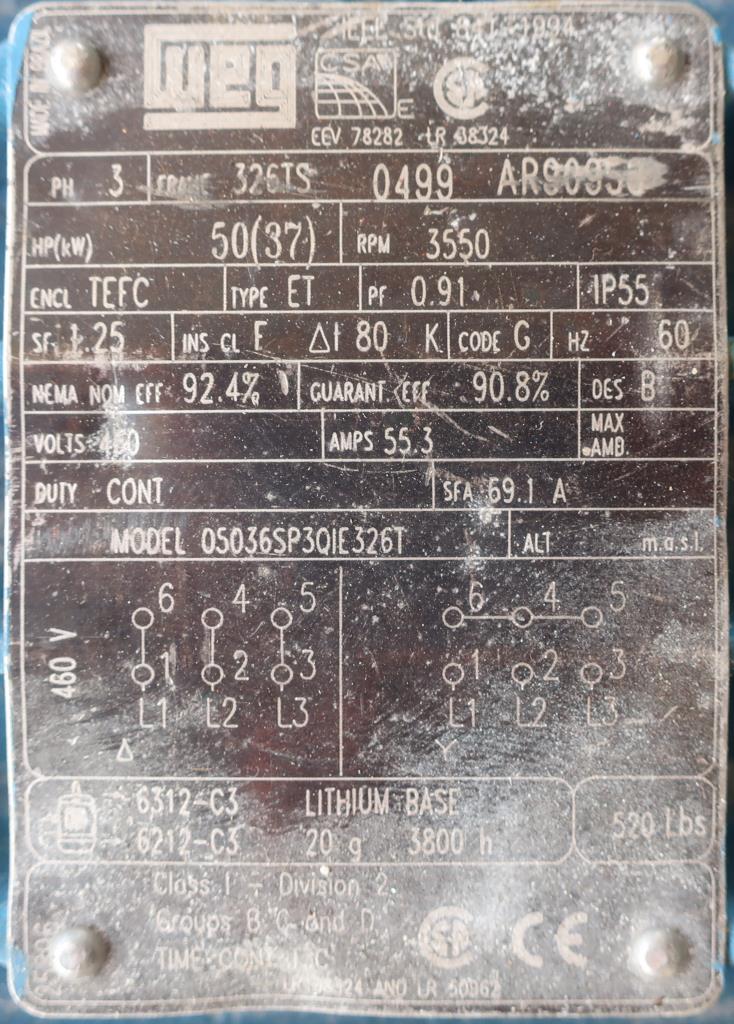 WEG
CSA
E
EEV 78282 LR 38324
PH 3 FRAME 326TS 0499
HP(kW) 50(37) RPM 3550
ENCL TEFC TYPE ET PF 0.91 IP55
SF 1.25 INS CL F Δt 80 K CODE G HZ 60
NEMA NOM EFF 92.4% GUARANT. EFF 90.8% DES B
VOLTS 460 AMPS 55.3 MAX. AMB.
DUTY CONT SFA 69.1 A
MODEL 05036SP3QIE326T ALT m.a.s.l.
6 4 5 6 4 5
460 V
1 2 3 1 2 3
L1 L2 L3 L1 L2 L3
Δ Y
6312-C3 LITHIUM BASE
6212-C3 20 g 3800 h
520 Lbs
Class I - Division 2
Groups B C and D
CE
AND LR 50962